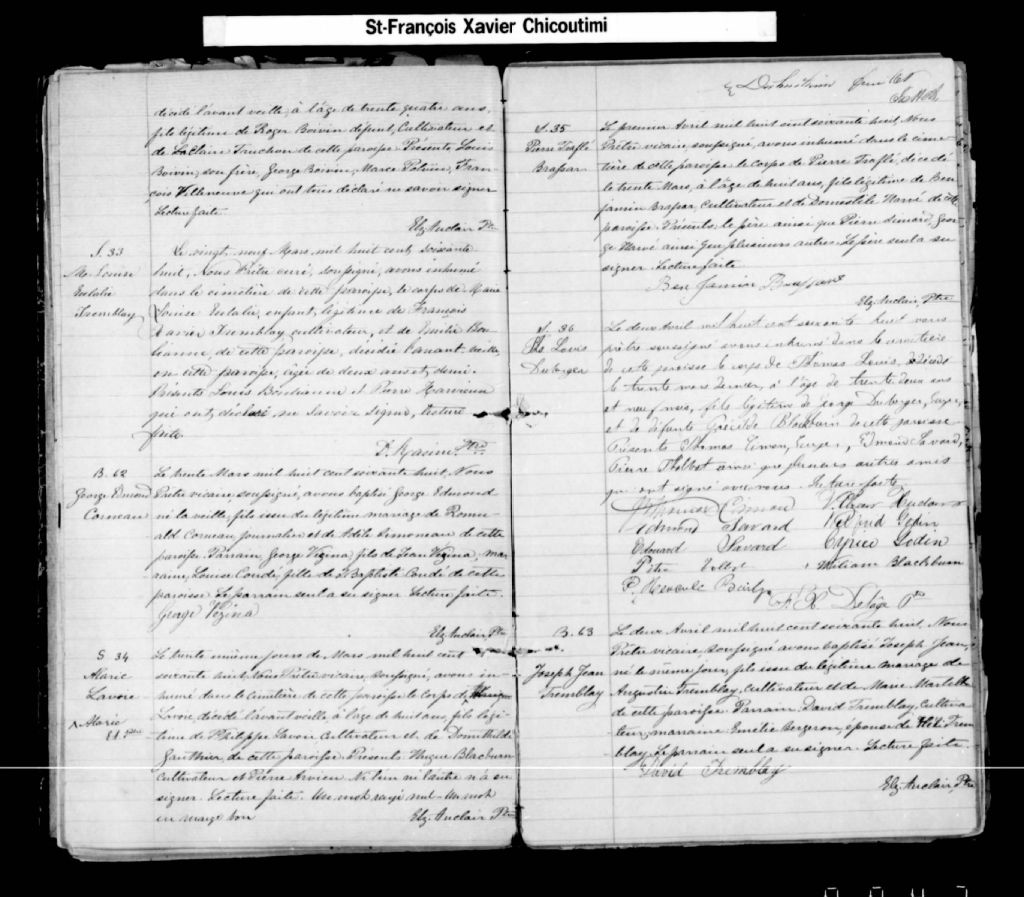 St-François Xavier Chicoutimi
décédé l'avant veille, à l'âge de trente quatre ans,
fils légitime de Roger Boivin défunt, Cultivateur et
de Claire Truchon de cette paroisse. Présents Louis
Boivin, son frère, George Boivin, Marce Potvin, Fran-
çois Villeneuve qui ont tous déclaré ne savoir signer
Lecture faite.
Elz. Auclair Ptre
S. 33
Me. Louise
Eulalie
Tremblay
Le vingt neuf Mars mil huit cent soixante
huit, Nous Prêtre curé, soussigné, avons inhumé
dans le cimetière de cette paroisse, le corps de Marie
Louise Eulalie, enfant, légitime de François
Xavier Tremblay, cultivateur, et de Emilie Bou-
lianne, de cette paroisse, décédée l'avant-veille,
en cette paroisse, agée de deux ans et demi.
Présents Louis Boulianne et Pierre
qui ont déclaré ne savoir signer, lecture
faite.
D. Racine Ptre
B. 62
George Edmond
Corneau
Le trente Mars mil huit cent soixante huit, Nous
Prêtre vicaire, soussigné, avons baptisé George Edmond
né la veille, fils issu du légitime mariage de Romu-
ald Corneau journalier et de Adèle Simoneau de cette
paroisse. Parrain, George Vézina, fils de Jean Vézina, mar-
raine, Louise Condé, fille de Baptiste Condé de cette
paroisse Le parrain seul a su signer. Lecture faite.
George Vézina
Elz. Auclair, Ptre
S 34
Marie
Lavoie
^ Marie
Le trente unième jour de Mars mil huit cent
soixante huit, Nous Prêtre vicaire, soussigné, avons in-
humé dans le cimetière de cette paroisse le corps de
Lavoie, décédé l'avant veille, à l'âge de huit ans, fils légi-
time de Philippe Lavoie Cultivateur et de Domithilde
Gauthier, de cette paroisse. Présents Hugue Blacburn
cultivateur et Pierre Arvieu. Ni l'un ni l'autre n'a su
signer. Lecture faite. Un mot rayé nul - Un mot
en marge bon
Elz. Auclair Ptre
S. 35
Pierre Téofle
Brassar
Le premier Avril mil huit cent soixante huit, Nous
Prêtre vicaire, soussigné, avons inhumé dans le cime-
tière de cette paroisse le corps de Pierre Téofle, décédé
le trente Mars, à l'âge de huit ans, fils légitime de Ben-
jamin Brassar, Cultivateur et de Domethilde Harvé de cette
paroisse. Présents, le père ainsi que Pierre Simard, Geor-
ge Harvé ainsi que plusieurs autres. Le père seul a su
signer. Lecture faite
Benjamin Brassard
Elz. Auclair, Ptre
S. 36
Ths. Louis
Duberger
Le deux Avril mil huit cent soixante huit nous
prêtre soussigné avons inhumé dans le cimetière
de cette paroisse le corps de Thomas Louis, décédé
le trente mars dernier, à l'âge de trente deux ans
et neuf mois, fils légitime de George Duberger, Ecuyer,
et de défunte Blackburn de cette paroisse
Présents Thomas Simon, Ecuyer, Edmond Savard,
Pierre Talbot ainsi que plusieurs autres amis
qui ont signé avec nous. Lecture faite
Edmond Savard
Godin
Edouard Savard
Cyprien Godin
William Blackburn
F. X. Delâge Ptre
B. 63
Joseph Jean
Tremblay
Le deux Avril mil huit cent soixante huit, Nous
Prêtre vicaire, soussigné avons baptisé Joseph Jean,
né le même jour, fils issu du légitime mariage de
Augustin Tremblay, Cultivateur et de Marie Martel
de cette paroisse. Parrain, David Tremblay, Cultiva-
teur, marraine Emélie Bergeron, épouse de Trem-
blay. Le parrain seul a su signer. Lecture faite
David Tremblay
Elz. Auclair Ptre